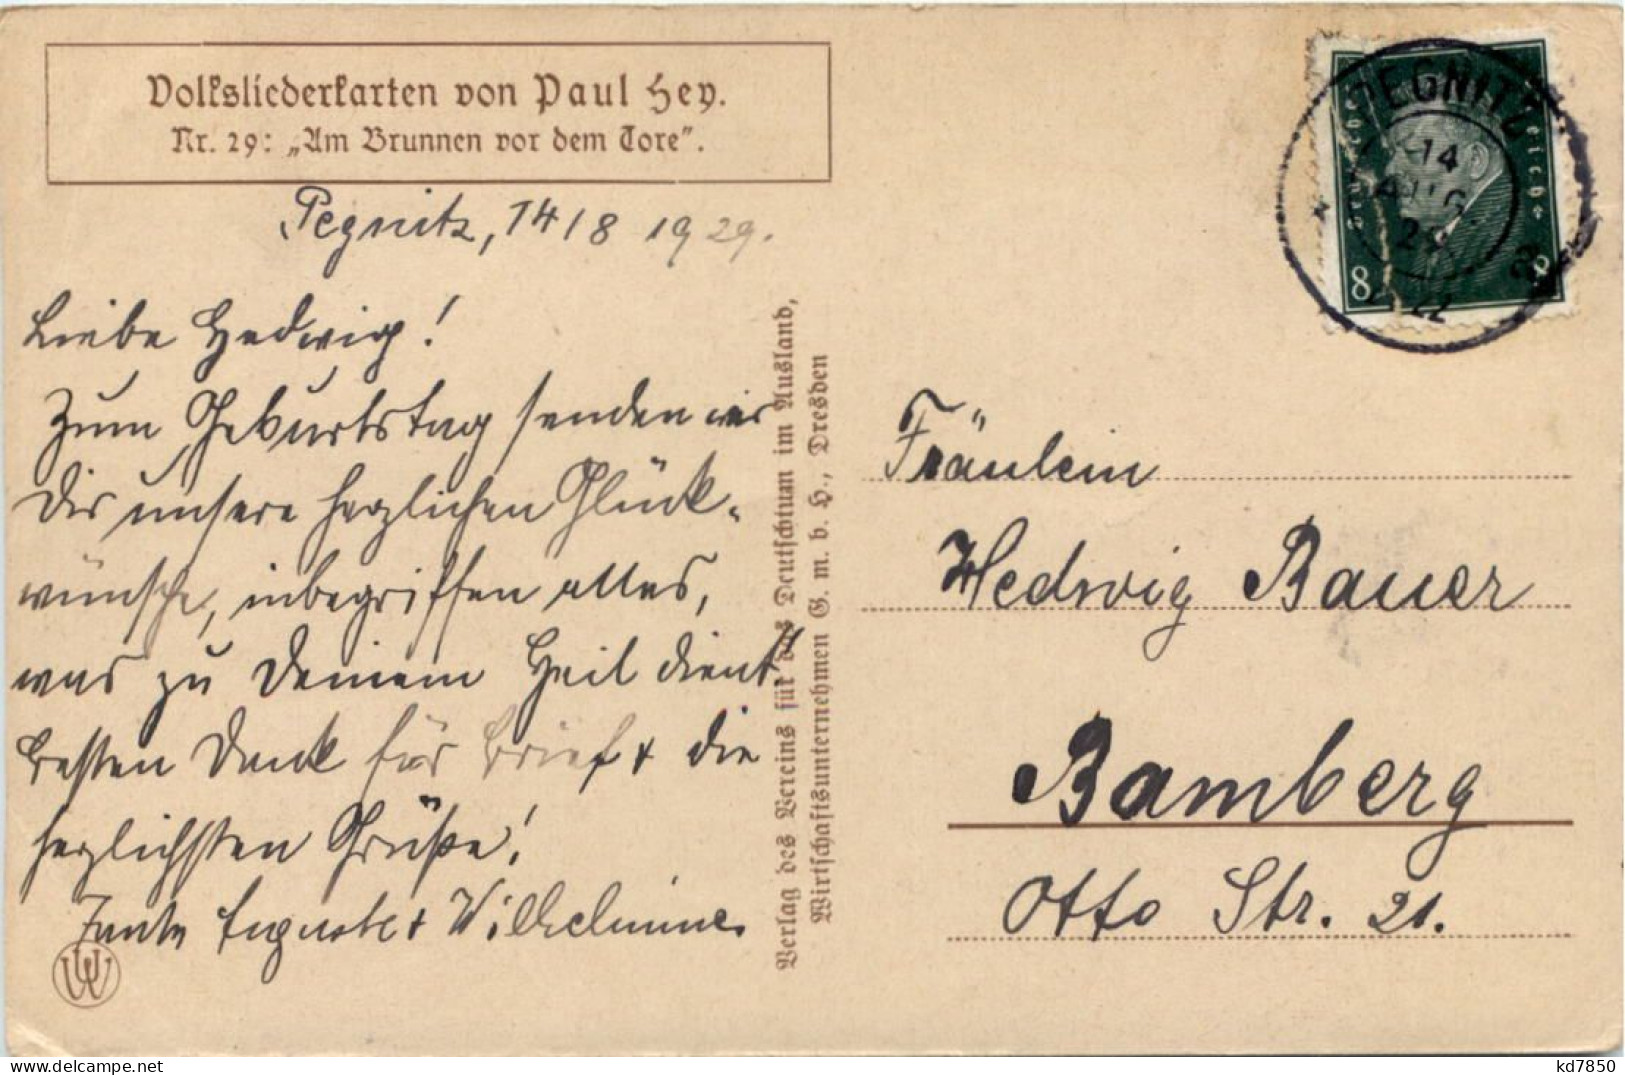 Volksliederkarten von Paul Hey.
Nr. 29: „Am Brunnen vor dem Tore".
Pegnitz, 14/8 1929.
Liebe Hedwig!
Zum Geburtstag senden wir
Dir unsere herzlichen Glück-
wünsche, inbegriffen alles,
was zu Deinem Heil dient!
Besten Dank für Brief + die
herzlichsten Grüße!
Tante Auguste + Wilhelmine.
Verlag des Vereins für das Deutschtum im Ausland,
Wirtschaftsunternehmen G. m. b. H., Dresden
PEGNITZ
14
AUG.
29
Deutsches Reich
8 8
Fräulein
Hedwig Bauer
Bamberg
Otto Str. 21.
kd7850